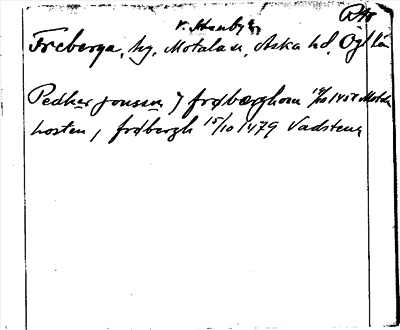 Rtr
v. Stenby by
Freberga, hg, Motala sn, Aska hd, Ög län
Pedher jonson j frøbærghom 17/10 1457 Motala
hosten j frøbergh 15/10 1479 Vadstena